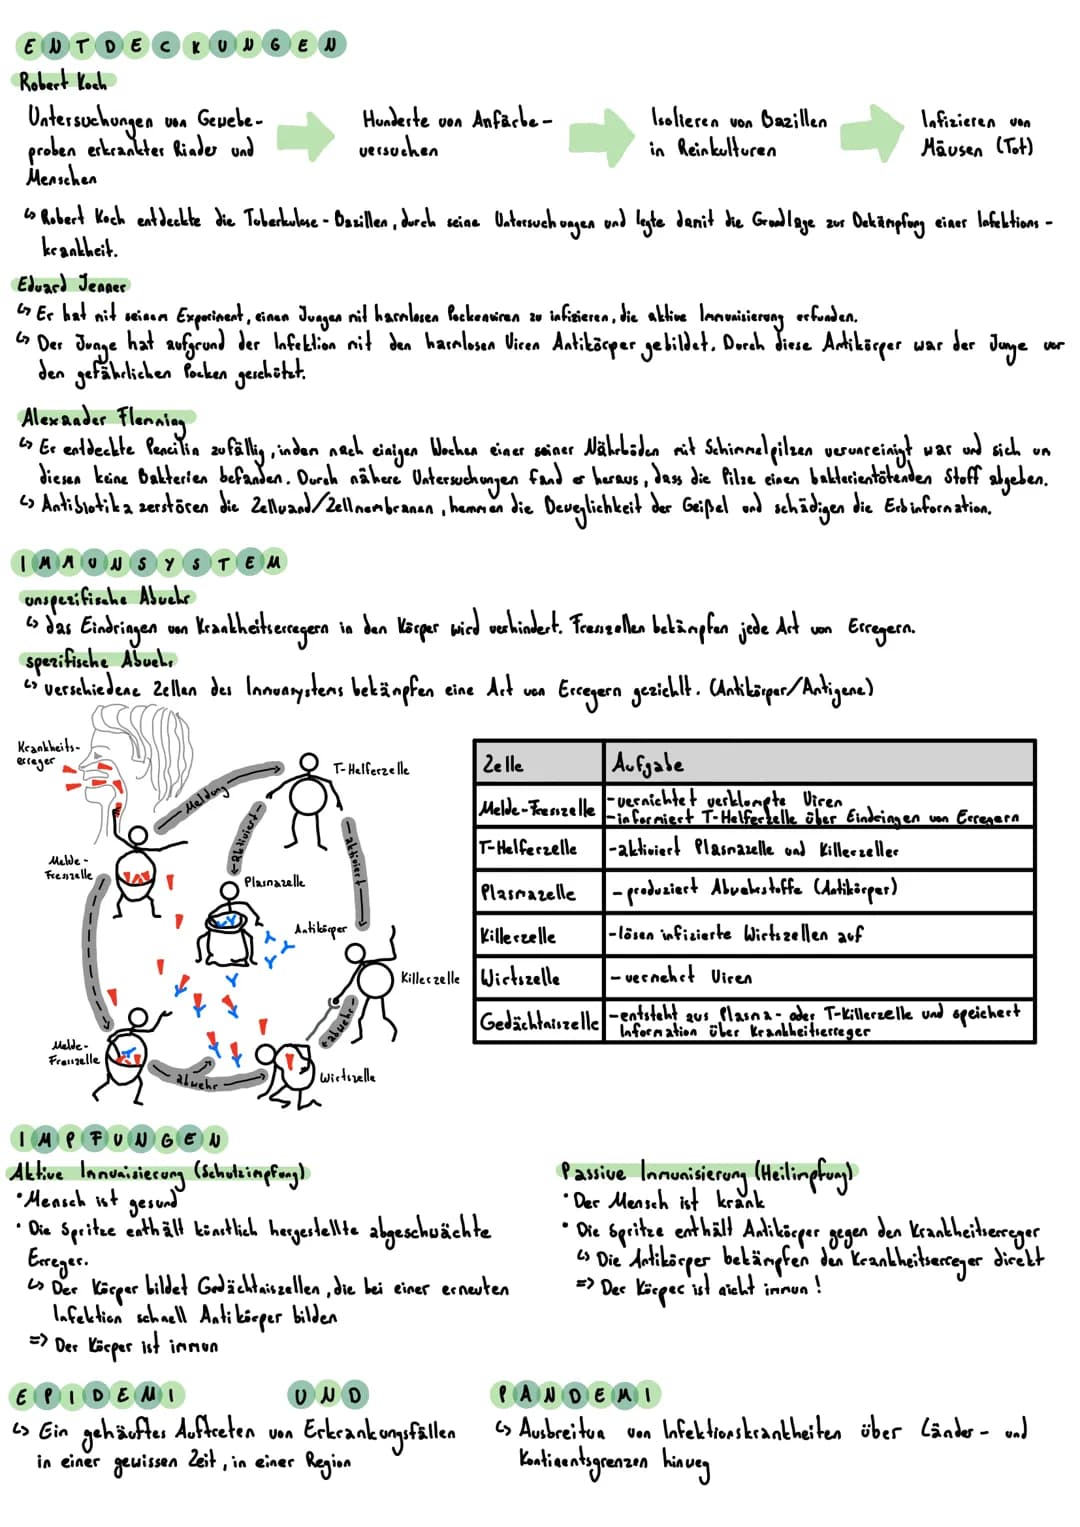 ENTDECKUNGEN
Robert Koch
Untersuchungen von Gewebe-
proben erkrankter Rinder und
Menschen
Hunderte von Anfärbe-
versuchen
Isolieren von Bazillen
in Reinkulturen
Infizieren von
Mäusen (Tot)
↳ Robert Koch entdeckte die Tuberkulose-Bazillen, durch seine Untersuchungen und legte damit die Grundlage zur Bekämpfung einer Infektions-
krankheit.
Eduard Jenner
↳ Er hat mit seinem Experiment, einen Jungen mit harmlosen Pockenviren zu infizieren, die aktive Immunisierung erfunden.
↳ Der Junge hat aufgrund der Infektion mit den harmlosen Viren Antikörper gebildet. Durch diese Antikörper war der Junge vor
den gefährlichen Pocken geschützt.
Alexander Flemming
↳ Er entdeckte Pencilin zufällig, indem nach einigen Wochen einer seiner Nährböden mit Schimmelpilzen verunreinigt war und sich um
diesen keine Bakterien befanden. Durch nähere Untersuchungen fand er heraus, dass die Pilze einen bakterientötenden Stoff abgeben.
↳ Antibiotika zerstören die Zellwand/Zellmembranen, hemmen die Beweglichkeit der Geißel und schädigen die Erbinformation.
IMMUNSYSTEM
unspezifische Abwehr
↳ das Eindringen von Krankheitserregern in den Körper wird verhindert. Fresszellen bekämpfen jede Art von Erregern.
spezifische Abwehr
↳ verschiedene Zellen des Immunsystems bekämpfen eine Art von Erregern gezielt. (Antikörper/Antigene)
Krankheits-
erreger
Meldung
T-Helferzelle
Aktiviert
aktiviert
Melde-
Fresszelle
Plasmazelle
Antikörper
Killerzelle
abwehr
Melde-
Fresszelle
abwehr
Wirtszelle
Zelle Aufgabe
Melde-Fresszelle -vernichtet verklompte Viren
-informiert T-Helferzelle über Eindringen von Erregern
T-Helferzelle -aktiviert Plasmazelle und Killerzeller
Plasmazelle - produziert Abwehrstoffe (Antikörper)
Killerzelle -lösen infizierte Wirtszellen auf
Wirtszelle - vermehrt Viren
Gedächtniszelle -entsteht aus Plasma- oder T-Killerzelle und speichert
Information über Krankheitserreger
IMPFUNGEN
Aktive Immunisierung (Schutzimpfung)
• Mensch ist gesund
• Die Spritze enthält künstlich hergestellte abgeschwächte
Erreger.
↳ Der Körper bildet Gedächtniszellen, die bei einer erneuten
Infektion schnell Antikörper bilden
=> Der Körper ist immun
Passive Immunisierung (Heilimpfung)
• Der Mensch ist krank
• Die Spritze enthält Antikörper gegen den Krankheitserreger
↳ Die Antikörper bekämpfen den Krankheitserreger direkt
=> Der Körper ist nicht immun!
EPIDEMI UND PANDEMI
↳ Ein gehäuftes Auftreten von Erkrankungsfällen
in einer gewissen Zeit, in einer Region
↳ Ausbreitun von Infektionskrankheiten über Länder- und
Kontinentsgrenzen hinweg